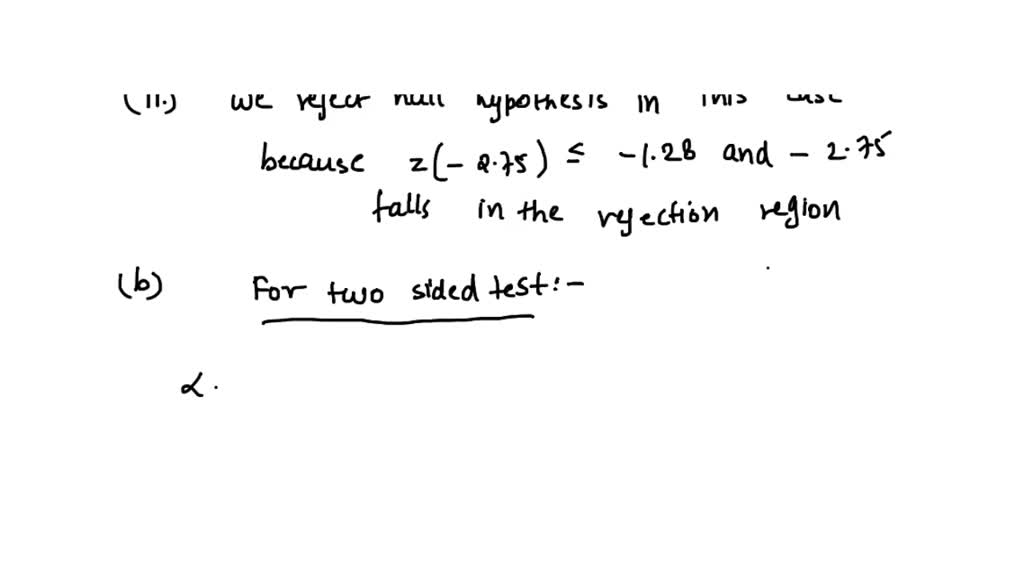 (ii.) we reject null hypothesis in this case
because z(- 2.75) ≤ -1.28 and - 2.75
falls in the rejection region
(b) For two sided test:-
α